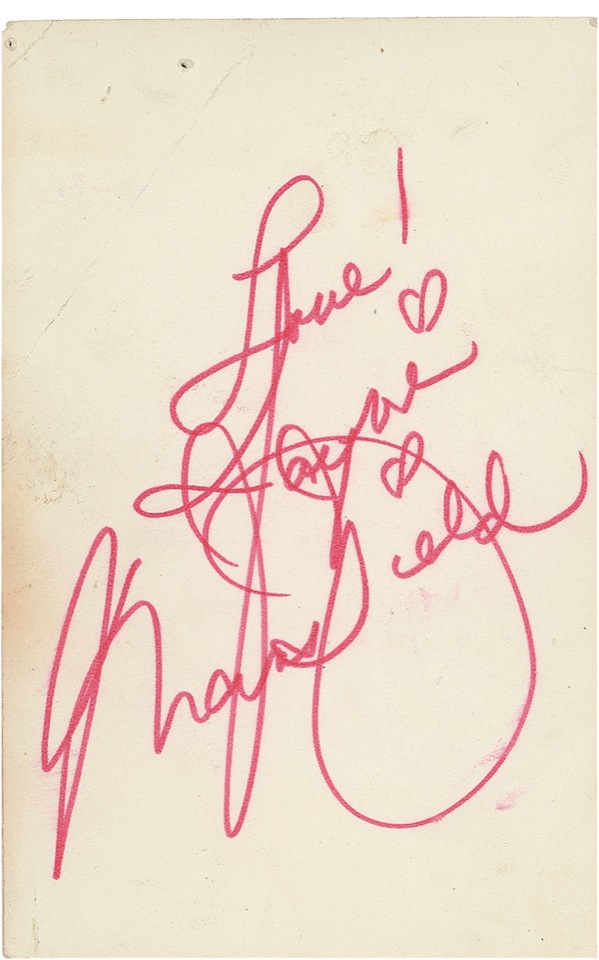 Love!
Jayne
Mansfield